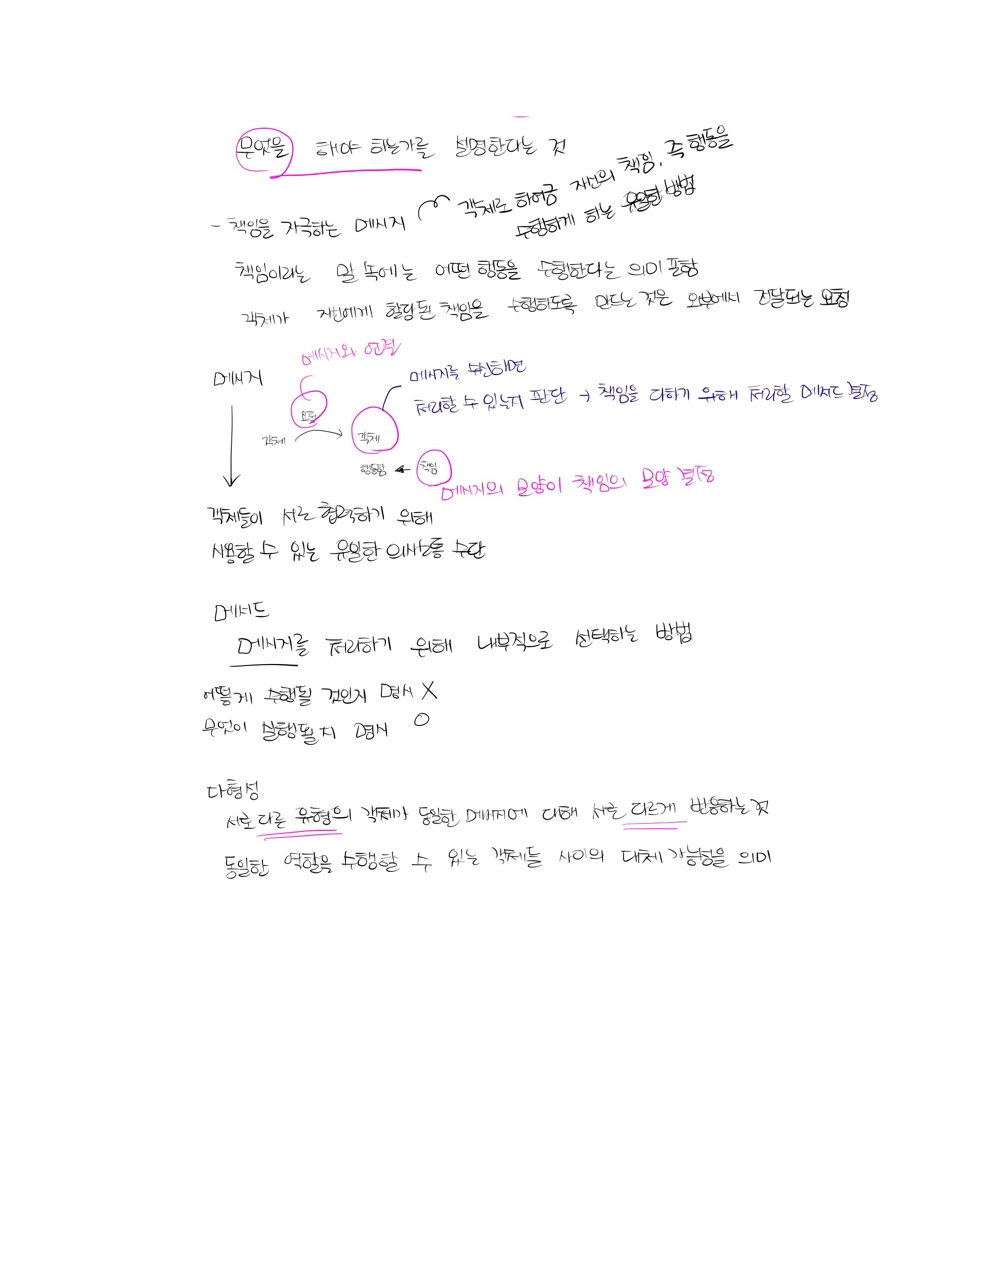 무엇을 해야 하는가를 설명한다는 것
- 책임을 자극하는 메시지
객체로 하여금 자신의 책임, 즉 행동을
수행하게 하는 유일한 방법
책임이라는 말 속에는 어떤 행동을 수행한다는 의미 포함
객체가 자신에게 할당된 책임을 수행하도록 만드는 것은 외부에서 전달되는 요청
메시지와 연결
메시지
메시지를 수신하면
처리할 수 있는지 판단 → 책임을 다하기 위해 처리할 메서드 결정
요청
객체
객체
행동함 ← 책임
메시지의 모양이 책임의 모양 결정
객체들이 서로 협력하기 위해
사용할 수 있는 유일한 의사소통 수단
메서드
메시지를 처리하기 위해 내부적으로 선택하는 방법
어떻게 수행될 것인지 명시 X
무엇이 실행될지 명시 O
다형성
서로 다른 유형의 객체가 동일한 메시지에 대해 서로 다르게 반응하는 것
동일한 역할을 수행할 수 있는 객체들 사이의 대체 가능성을 의미